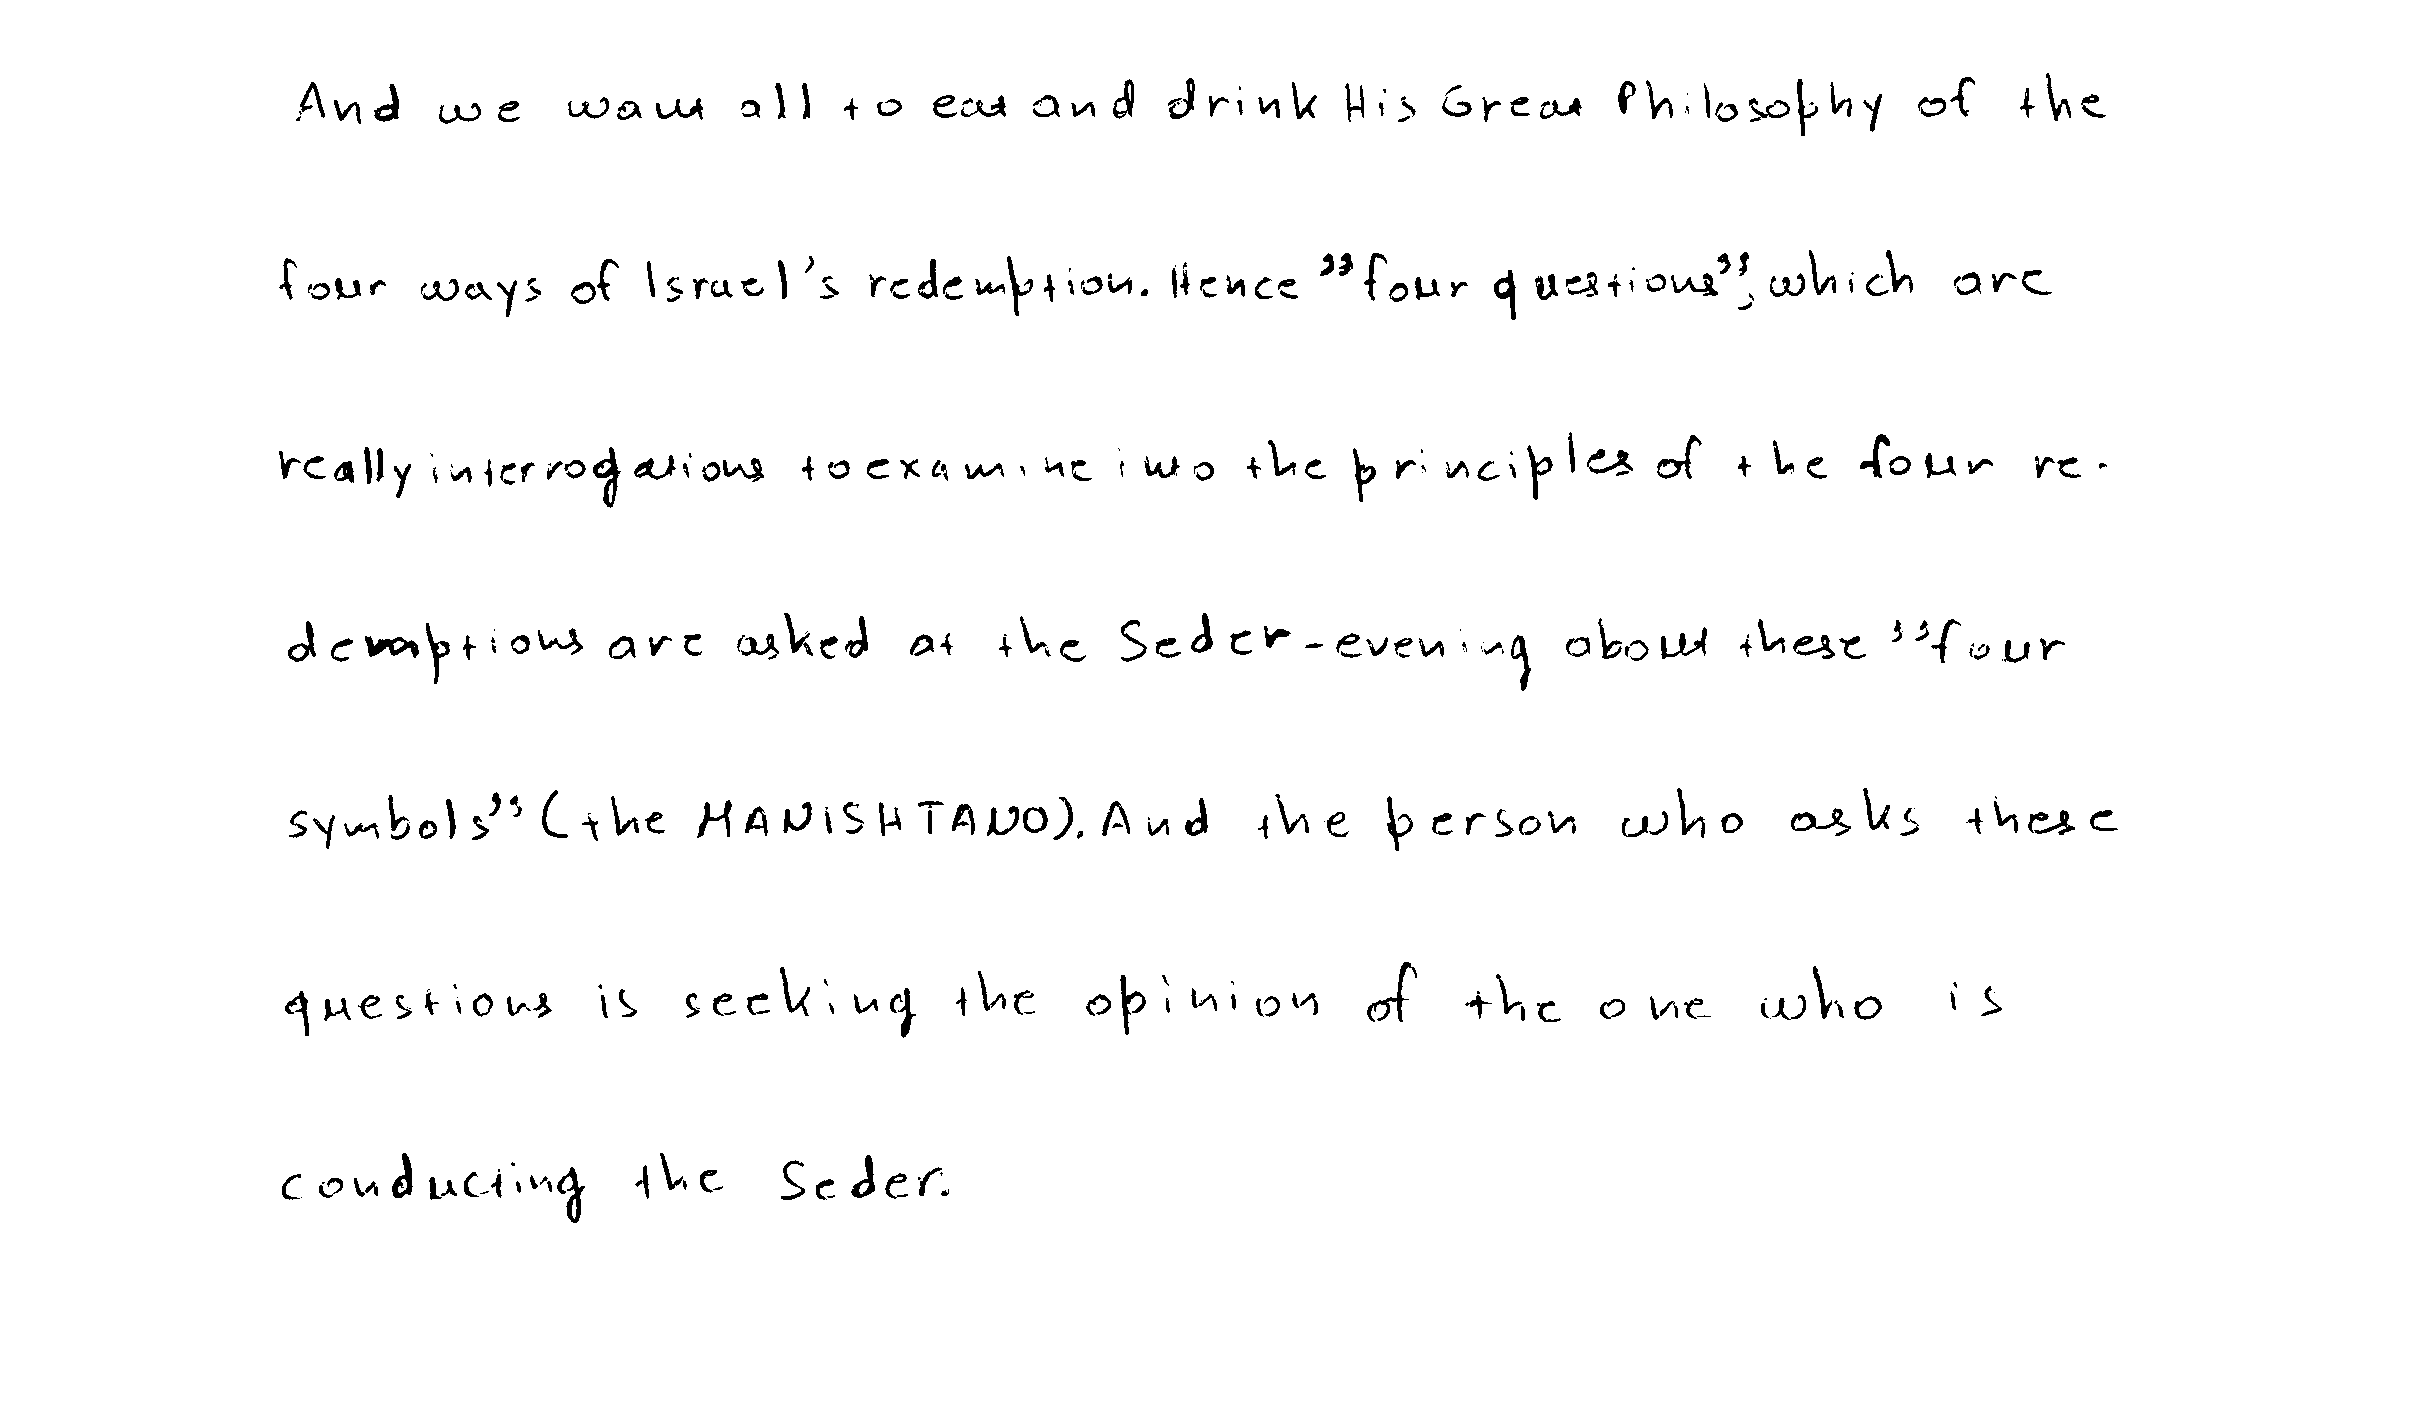 And we want all to eat and drink His Great Philosophy of the
four ways of Israel's redemption. Hence "four questions", which are
really interrogations to examine into the principles of the four re-
demptions are asked at the Seder-evening about these "four
symbols" (the MANISHTANO). And the person who asks these
questions is seeking the opinion of the one who is
conducting the Seder.